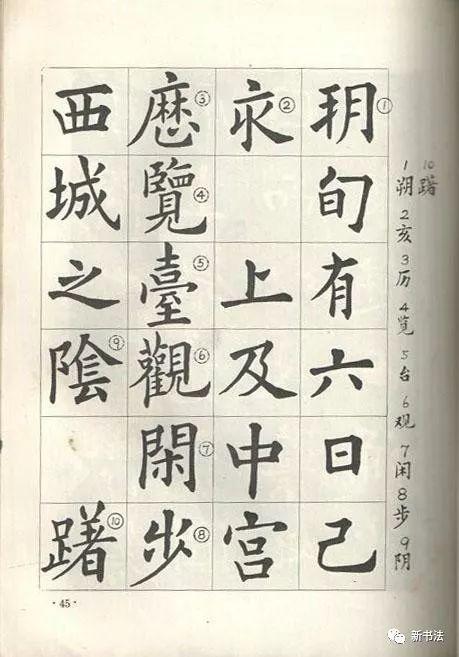 朔①旬有六日己
亥②上及中宮
歷③覽④臺⑤觀⑥閑⑦步⑧
西城之陰⑨躇⑩
1朔2亥3历4览5台6观7闲8步9阴
10躇
·45·
新书法